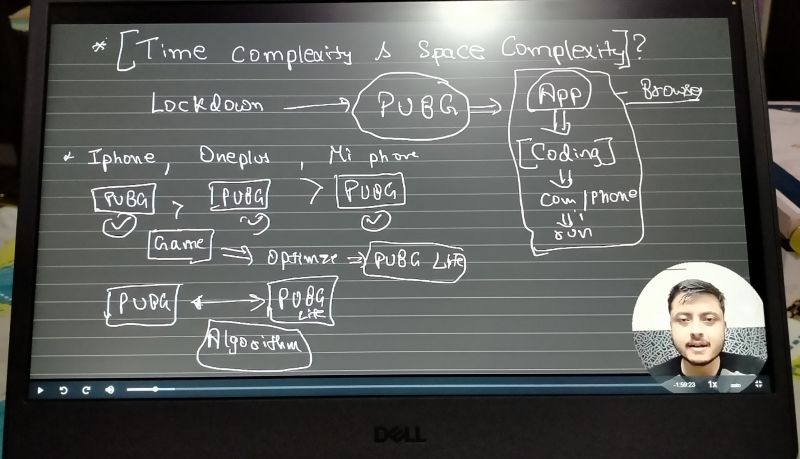 * [Time Complexity & Space Complexity]?
Lockdown → PUBG ⇒ App – Browse
[Coding]
com/phone
run
* Iphone, Oneplus, Mi phone
PUBG > PUBG > PUBG
Game ⇒ Optimize ⇒ PUBG Lite
PUBG ↔ PUBG Lite
Algorithm
-1:59:23 1x auto
DELL